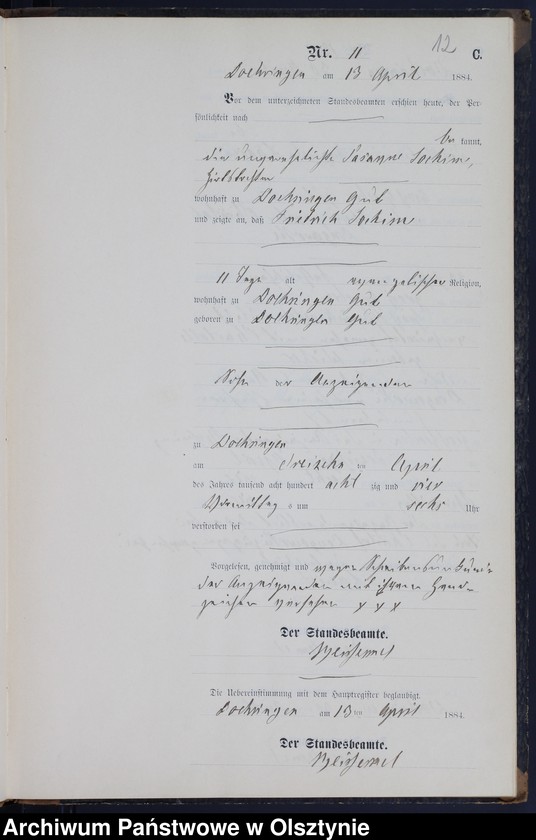 12
Nr. 11 C.
Doehringen am 13 April 1884.
Vor dem unterzeichneten Standesbeamten erschien heute, der Per-
sönlichkeit nach
be kannt,
die unverehelichte Jockim,
wohnhaft zu Doehringen Gut
und zeigte an, daß Friedrich Jockim
11 Tage alt evangelischer Religion,
wohnhaft zu Doehringen Gut
geboren zu Doehringen Gut
Sohn der Anzeigenden
zu Doehringen
am dreizehn ten April
des Jahres tausend acht hundert acht zig und vier
Vormittag s um sechs Uhr
verstorben sei
Vorgelesen, genehmigt und wegen Schreibensunkunde
der Anzeigenden mit ihrem Hand-
zeichen versehen x x x
Der Standesbeamte.
Die Uebereinstimmung mit dem Hauptregister beglaubigt.
Doehringen am 13 ten April 1884.
Der Standesbeamte.
Archiwum Państwowe w Olsztynie